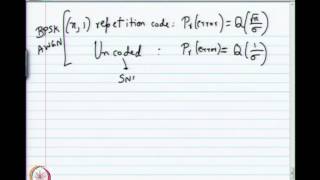 BPSK AWGN (n,1) repetition code: Pr(error) = Q(√n/σ)
Uncoded : Pr(error) = Q(1/σ)
SN